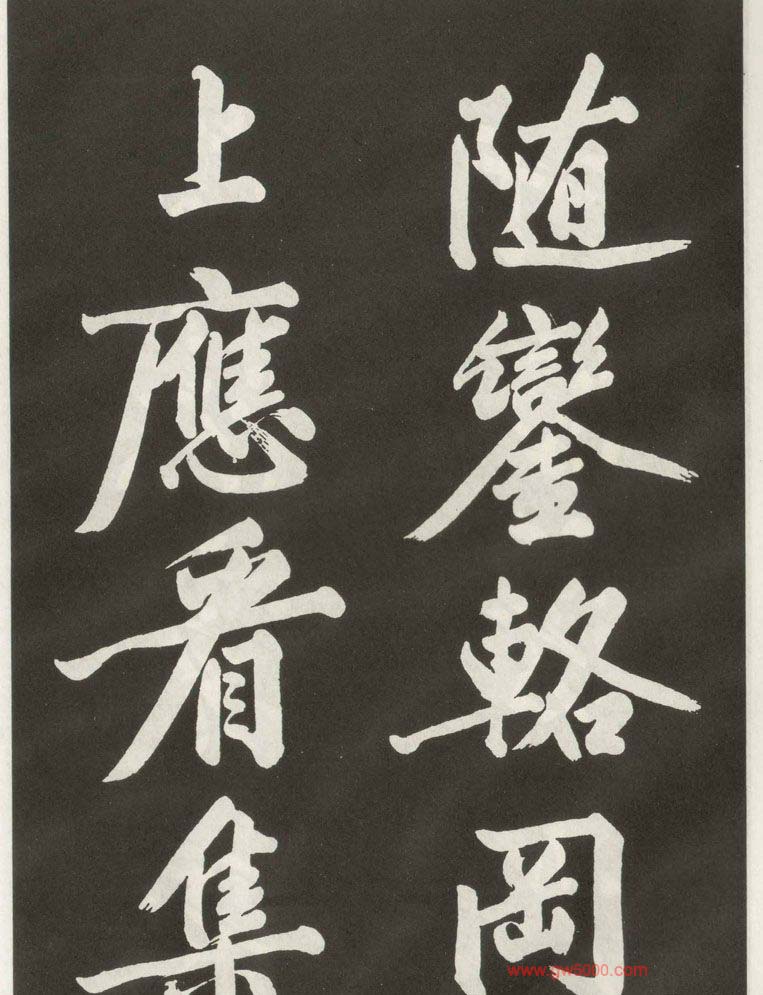 随鑾輅岡
上應看集
www.gw5000.com